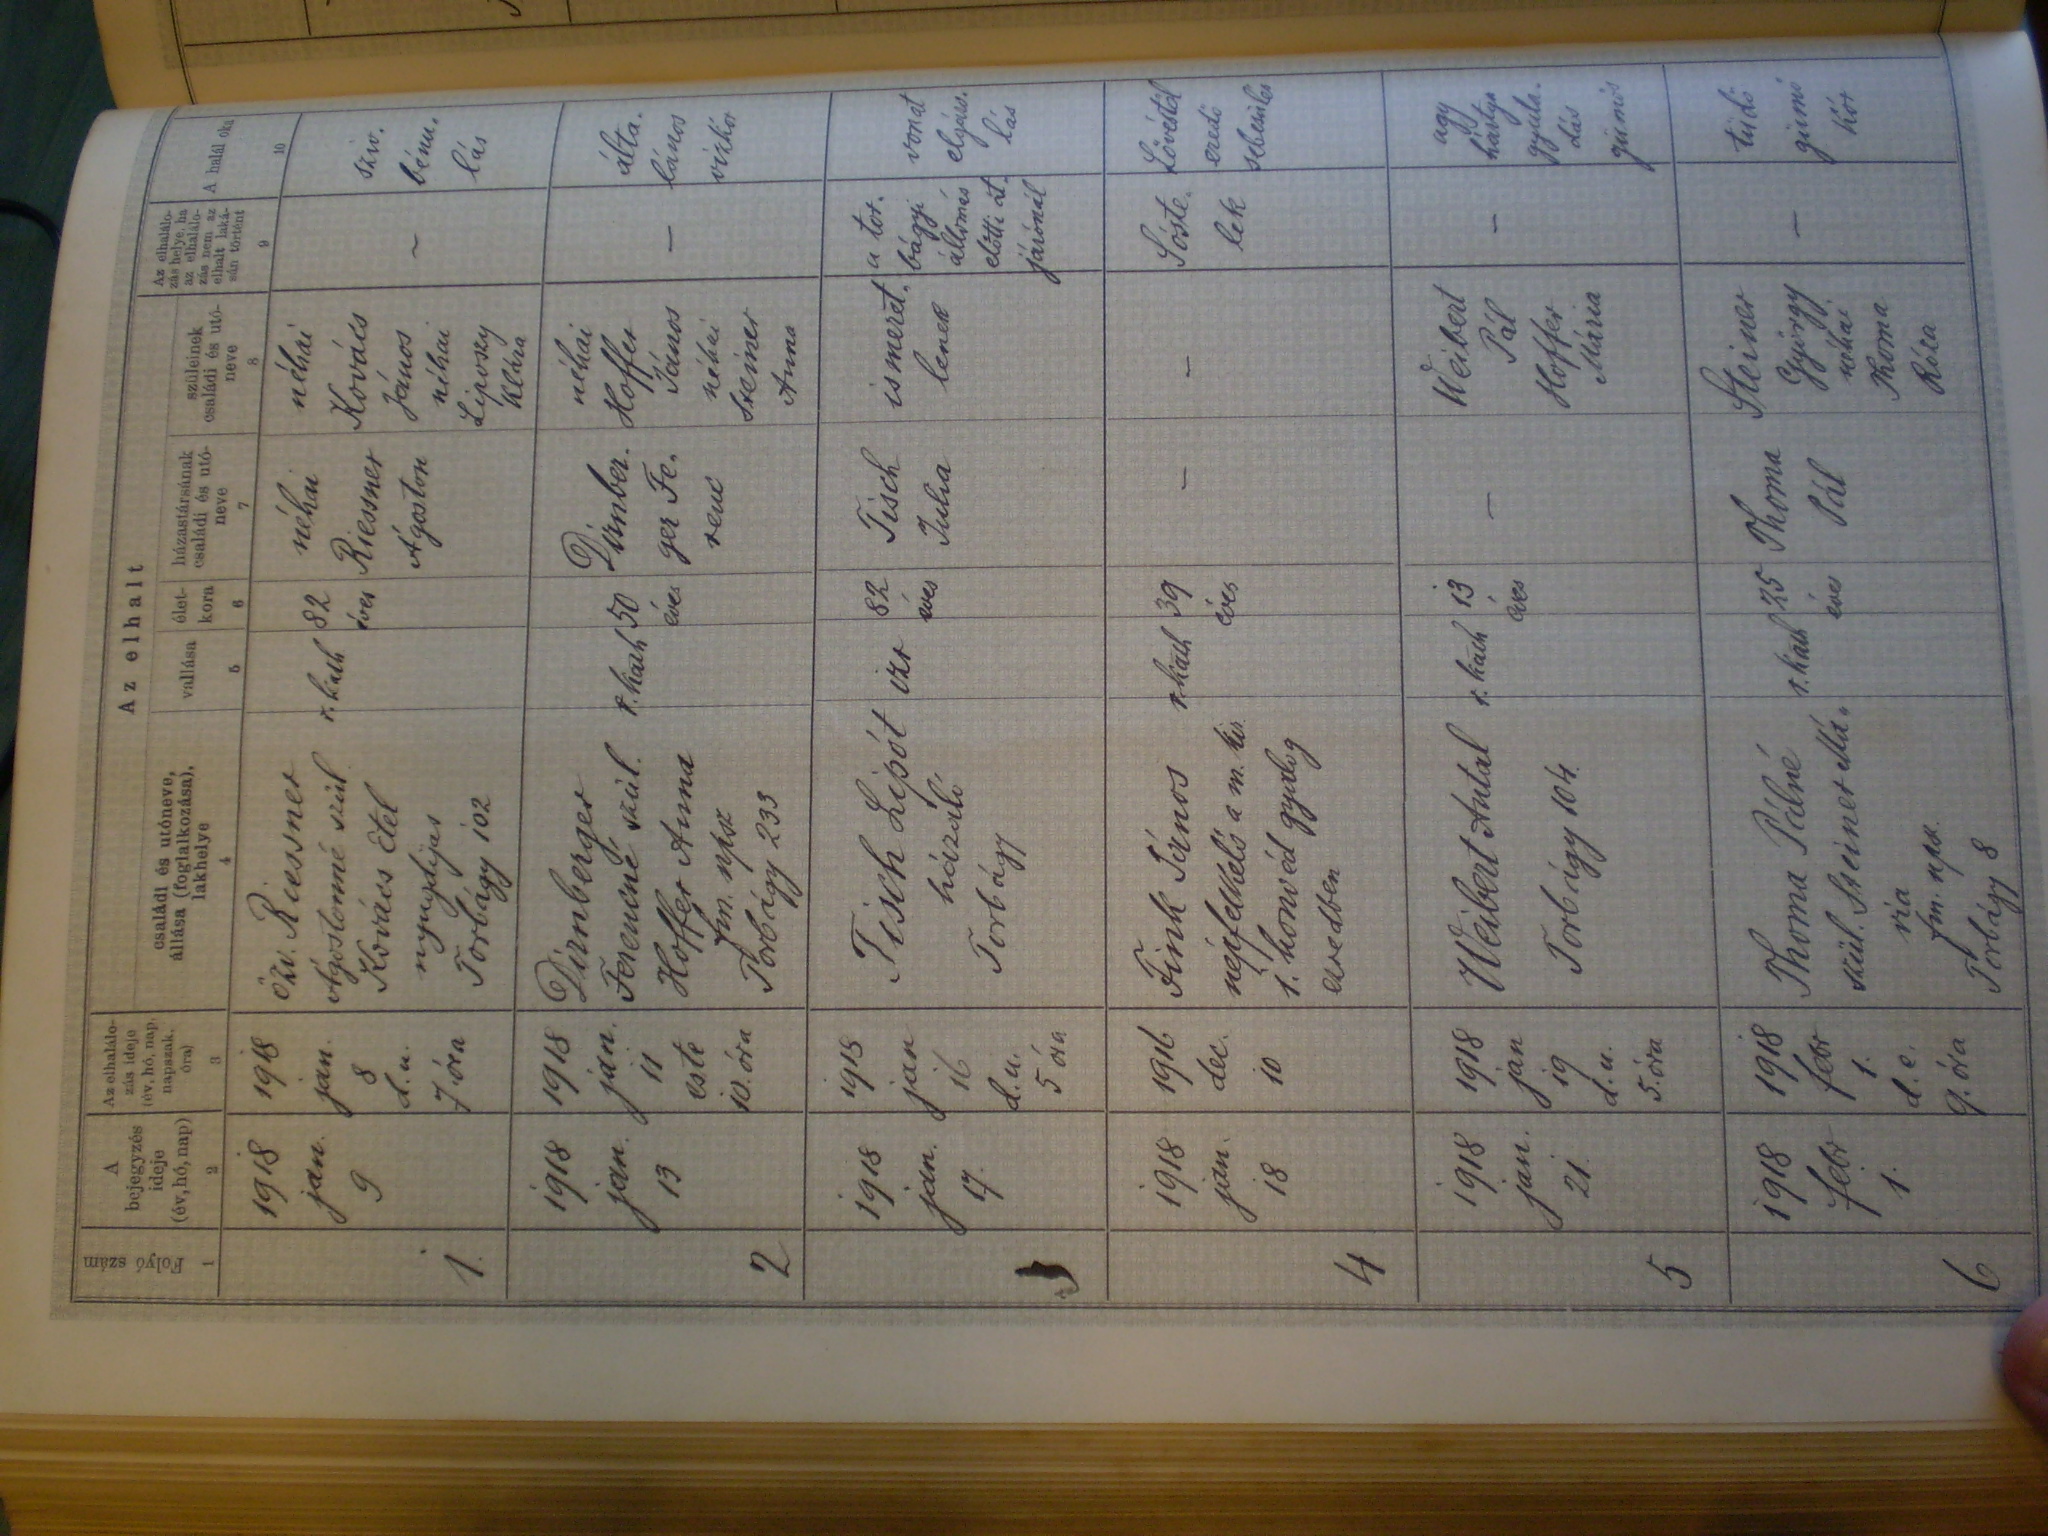 Az elhalt
Folyó szám
A
bejegyzés
ideje
(év, hó, nap)
Az elhaláló-
zás ideje
(év, hó, nap,
napszak,
óra)
családi és utóneve,
állása (foglalkozása),
lakhelye
vallása
élet-
kora
házastársának
családi és utó-
neve
szüleinek
családi és utó-
neve
Az elhaláló-
zás helye, ha
az elhaláló-
zás nem az
elhalt laká-
sán történt
A halál oka
1
2
3
4
5
6
7
8
9
10
1.
1918
jan.
9
1918
jan.
8
d.u.
7 óra
özv. Riessner
Ágostonné szül
Kovács Etel
nyugdijas
Torbágy 102
r. kath
82
éves
néhai
Riessner
Ágoston
néhai
Kovács
János
néhai
Liposzy
Klára
—
sziv.
bénu.
lás
2
1918
jan.
13
1918
jan.
11
este
10. óra
Dirnberger
Ferencné szül.
Hoffer Anna
fm. npsz
Torbágy 233
r. kath
50
éves
Dirnber.
ger Fe.
renc
néhai
Hoffer
János
néhai
Steiner
Anna
—
álta.
lános
vizkór
1918
jan.
17.
1918
jan
16
d.u.
5 óra
Tisch Lipót
házaló
Torbágy
izr
82
éves
Tisch
Julia
ismeret.
lenek
a tor.
bágyi
állomás
előtti át.
járónál
vonat
elgázo.
lás
4
1918
jan.
18
1916
dec.
10
Fink János
népfelkelő a m. kir.
1. honvéd gyalog
ezredben
r. kath
39
éves
—
—
Sóste.
lek
Lövéstől
eredő
sebesülés
5
1918
jan.
21.
1918
jan
19
d.u.
5. óra
Weibert Antal
Torbágy 104.
r. kath
13
éves
—
Weibert
Pál
Hoffer
Mária
—
agy
hártya
gyula.
dás
gümős
6
1918
febr
1.
1918
febr
1.
d.e.
9. óra
Thoma Pálné
szül. Steiner Má.
ria
fm. npsz.
Torbágy 8
r. kath
25
éves
Thoma
Pál
Steiner
György
néhai
Thoma
Róza
—
tüdő
gümő
kór